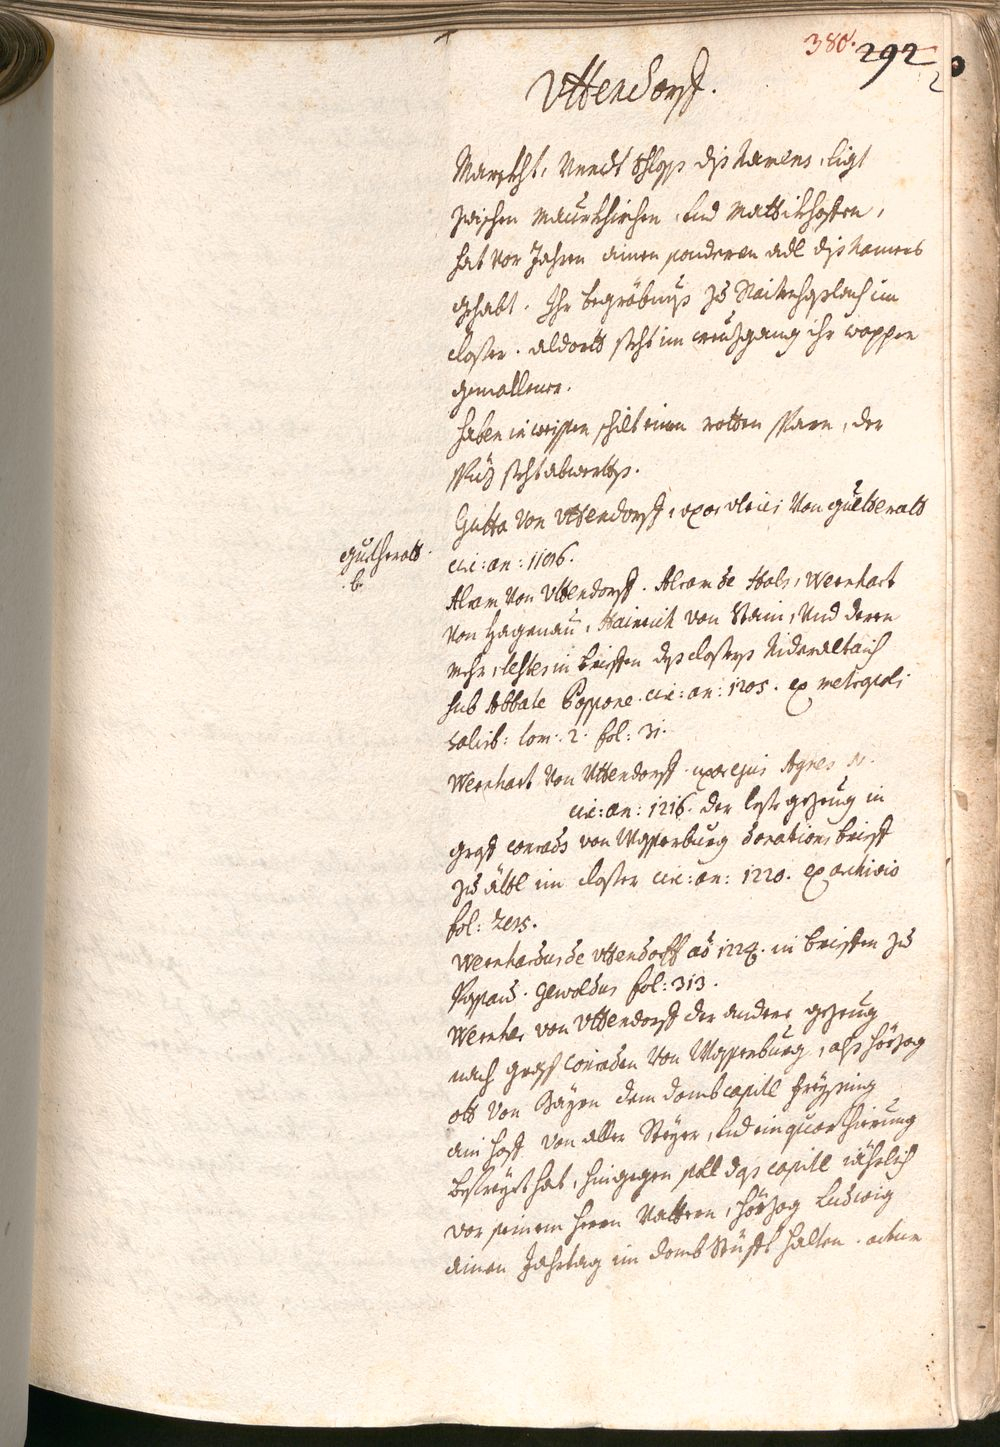 380. 292
2
Uttendorff.
Marckht, Unndt schloss diss Namens, ligt
zwischen Maurkhirchen, und Mattikhoffen,
hat vor Jahren ainen sonderen adl diss Namens
gehabt. Ihr begröbnus zu Raittenhaslach im
closter. aldortt steht im creuzgang ihr wappen
gemallener.
haben in weissen schilt einen rotten Sparn, der
Spüz steht abwerths.
Gutta von Uttendorff, uxor Ulrici von Gueltseratt
cir: an: 1196.
Alram von Uttendorff. Alram de Hals, Wernhart
von Hagenau, Hainrich von Stain, Und deren
mehr, testes in brieffen dess closters Nideraltaich
sub Abbate Poppone. cir: an: 1205. ex metropoli
salisb: tom: 2. fol: 31.
Wernhart von Uttendorff. uxor ejus Agnes N.
cir: an: 1216. der leste gezeug in
graff conrads von Wasserburg donations brieff
zu ättl im closter cir: an: 1220. ex archivio
fol:
Wernhardus de Uttendorff ad 1224. in brieffen zu
Passaud. Gewoldus fol: 313.
Wernher von Uttendorff der andere gezeug
nach graff Conraden von Wasserburg, alss Hörzog
ott von Bayrn dem dombcapitl Freysing
ain hoff von aller Steyer, und einquarthierung
befreyet hat, hingegen soll das capitl jährlich
vor seinem herrn Vattern, Hörzog Ludwig
ainen Jahrtag im domb Stüfft halten. actum